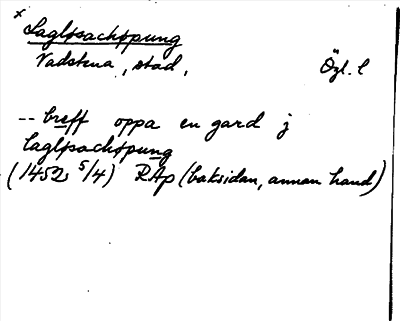 x
Lagløsachøpung
Vadstena, stad, Ögl. l
-- breff oppa en gard j
lagløsachøpung
(1452 5/4) RAp (baksidan, annan hand)